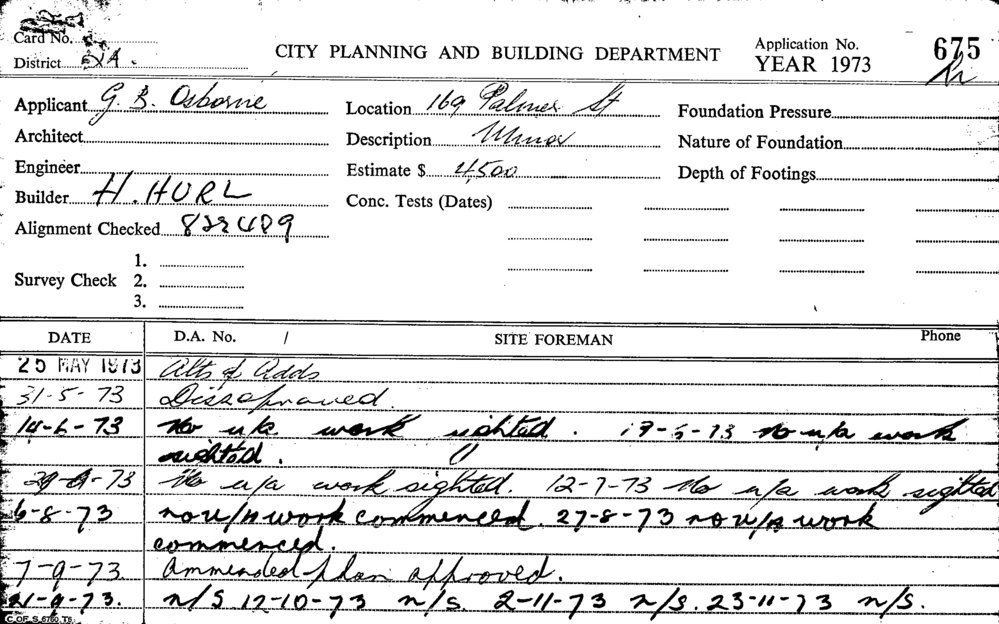 Card No.
CITY PLANNING AND BUILDING DEPARTMENT
Application No. 675
District
YEAR 1973
Applicant G. B. Osborne
Location 169 Palmer St
Foundation Pressure
Architect
Description Minor
Nature of Foundation
Engineer
Estimate $ 4,500
Depth of Footings
Builder H. HURL
Conc. Tests (Dates)
Alignment Checked 822489
Survey Check
1.
2.
3.
DATE D.A. No. / SITE FOREMAN Phone
25 MAY 1973 Alts & Adds
31-5-73 Dissaproved.
14-6-73 No u/a work sighted. No u/a work
sighted.
73 No u/a work sighted. 12-7-73 No u/a work sighted
6-8-73 no u/a work commenced. 27-8-73 no u/a work
commenced.
7-9-73. Ammended plan approved.
21-9-73. n/s. 12-10-73 n/s. 2-11-73 n/s. 23-11-73 n/s.